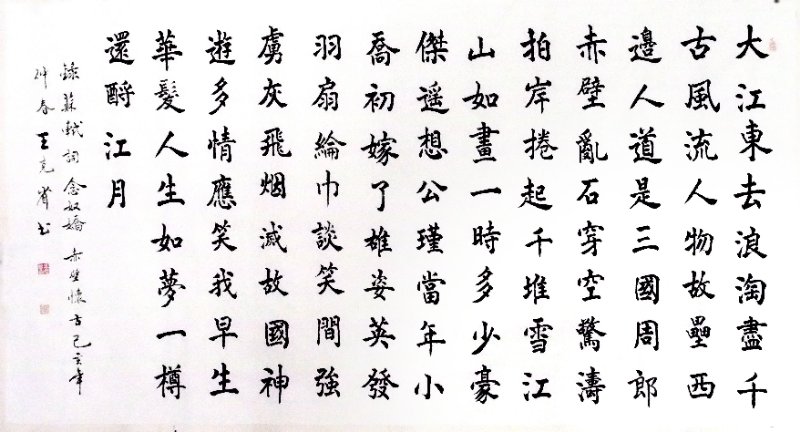 大江東去浪淘盡千
古風流人物故壘西
邊人道是三國周郎
赤壁亂石穿空驚濤
拍岸捲起千堆雪江
山如畫一時多少豪
傑遥想公瑾當年小
喬初嫁了雄姿英發
羽扇綸巾談笑間強
虜灰飛烟滅故國神
遊多情應笑我早生
華髮人生如夢一樽
還酹江月
錄蘇軾詞念奴嬌 赤壁懷古己亥年
春王克书